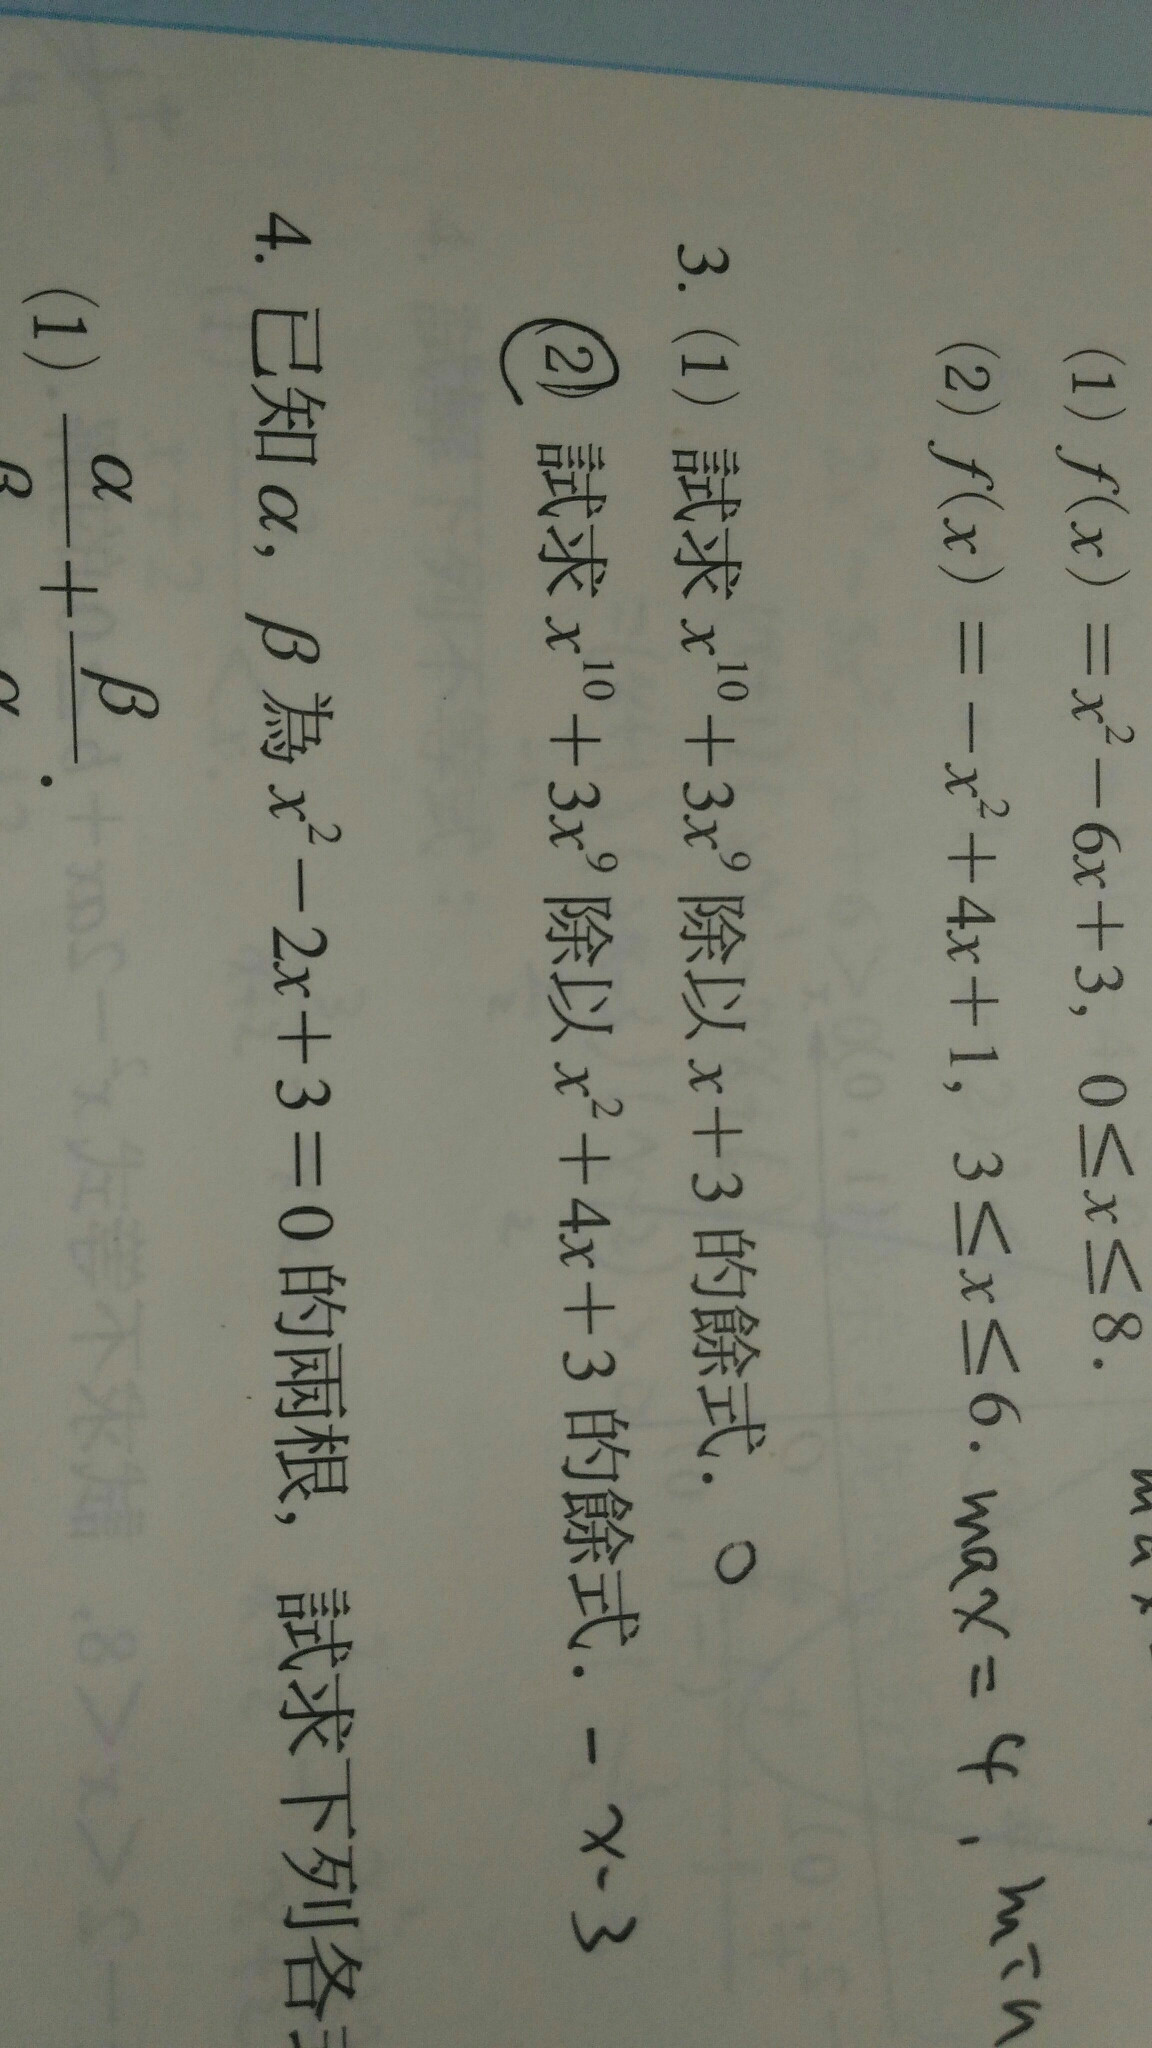 (1) f(x)=x²-6x+3, 0≤x≤8. max
(2) f(x)=-x²+4x+1, 3≤x≤6. max = 4, min
3. (1) 試求 x¹⁰+3x⁹ 除以 x+3 的餘式. 0
(2) 試求 x¹⁰+3x⁹ 除以 x²+4x+3 的餘式. -x-3
4. 已知 α, β 為 x²-2x+3=0 的兩根, 試求下列各
(1) α/β + β/α.